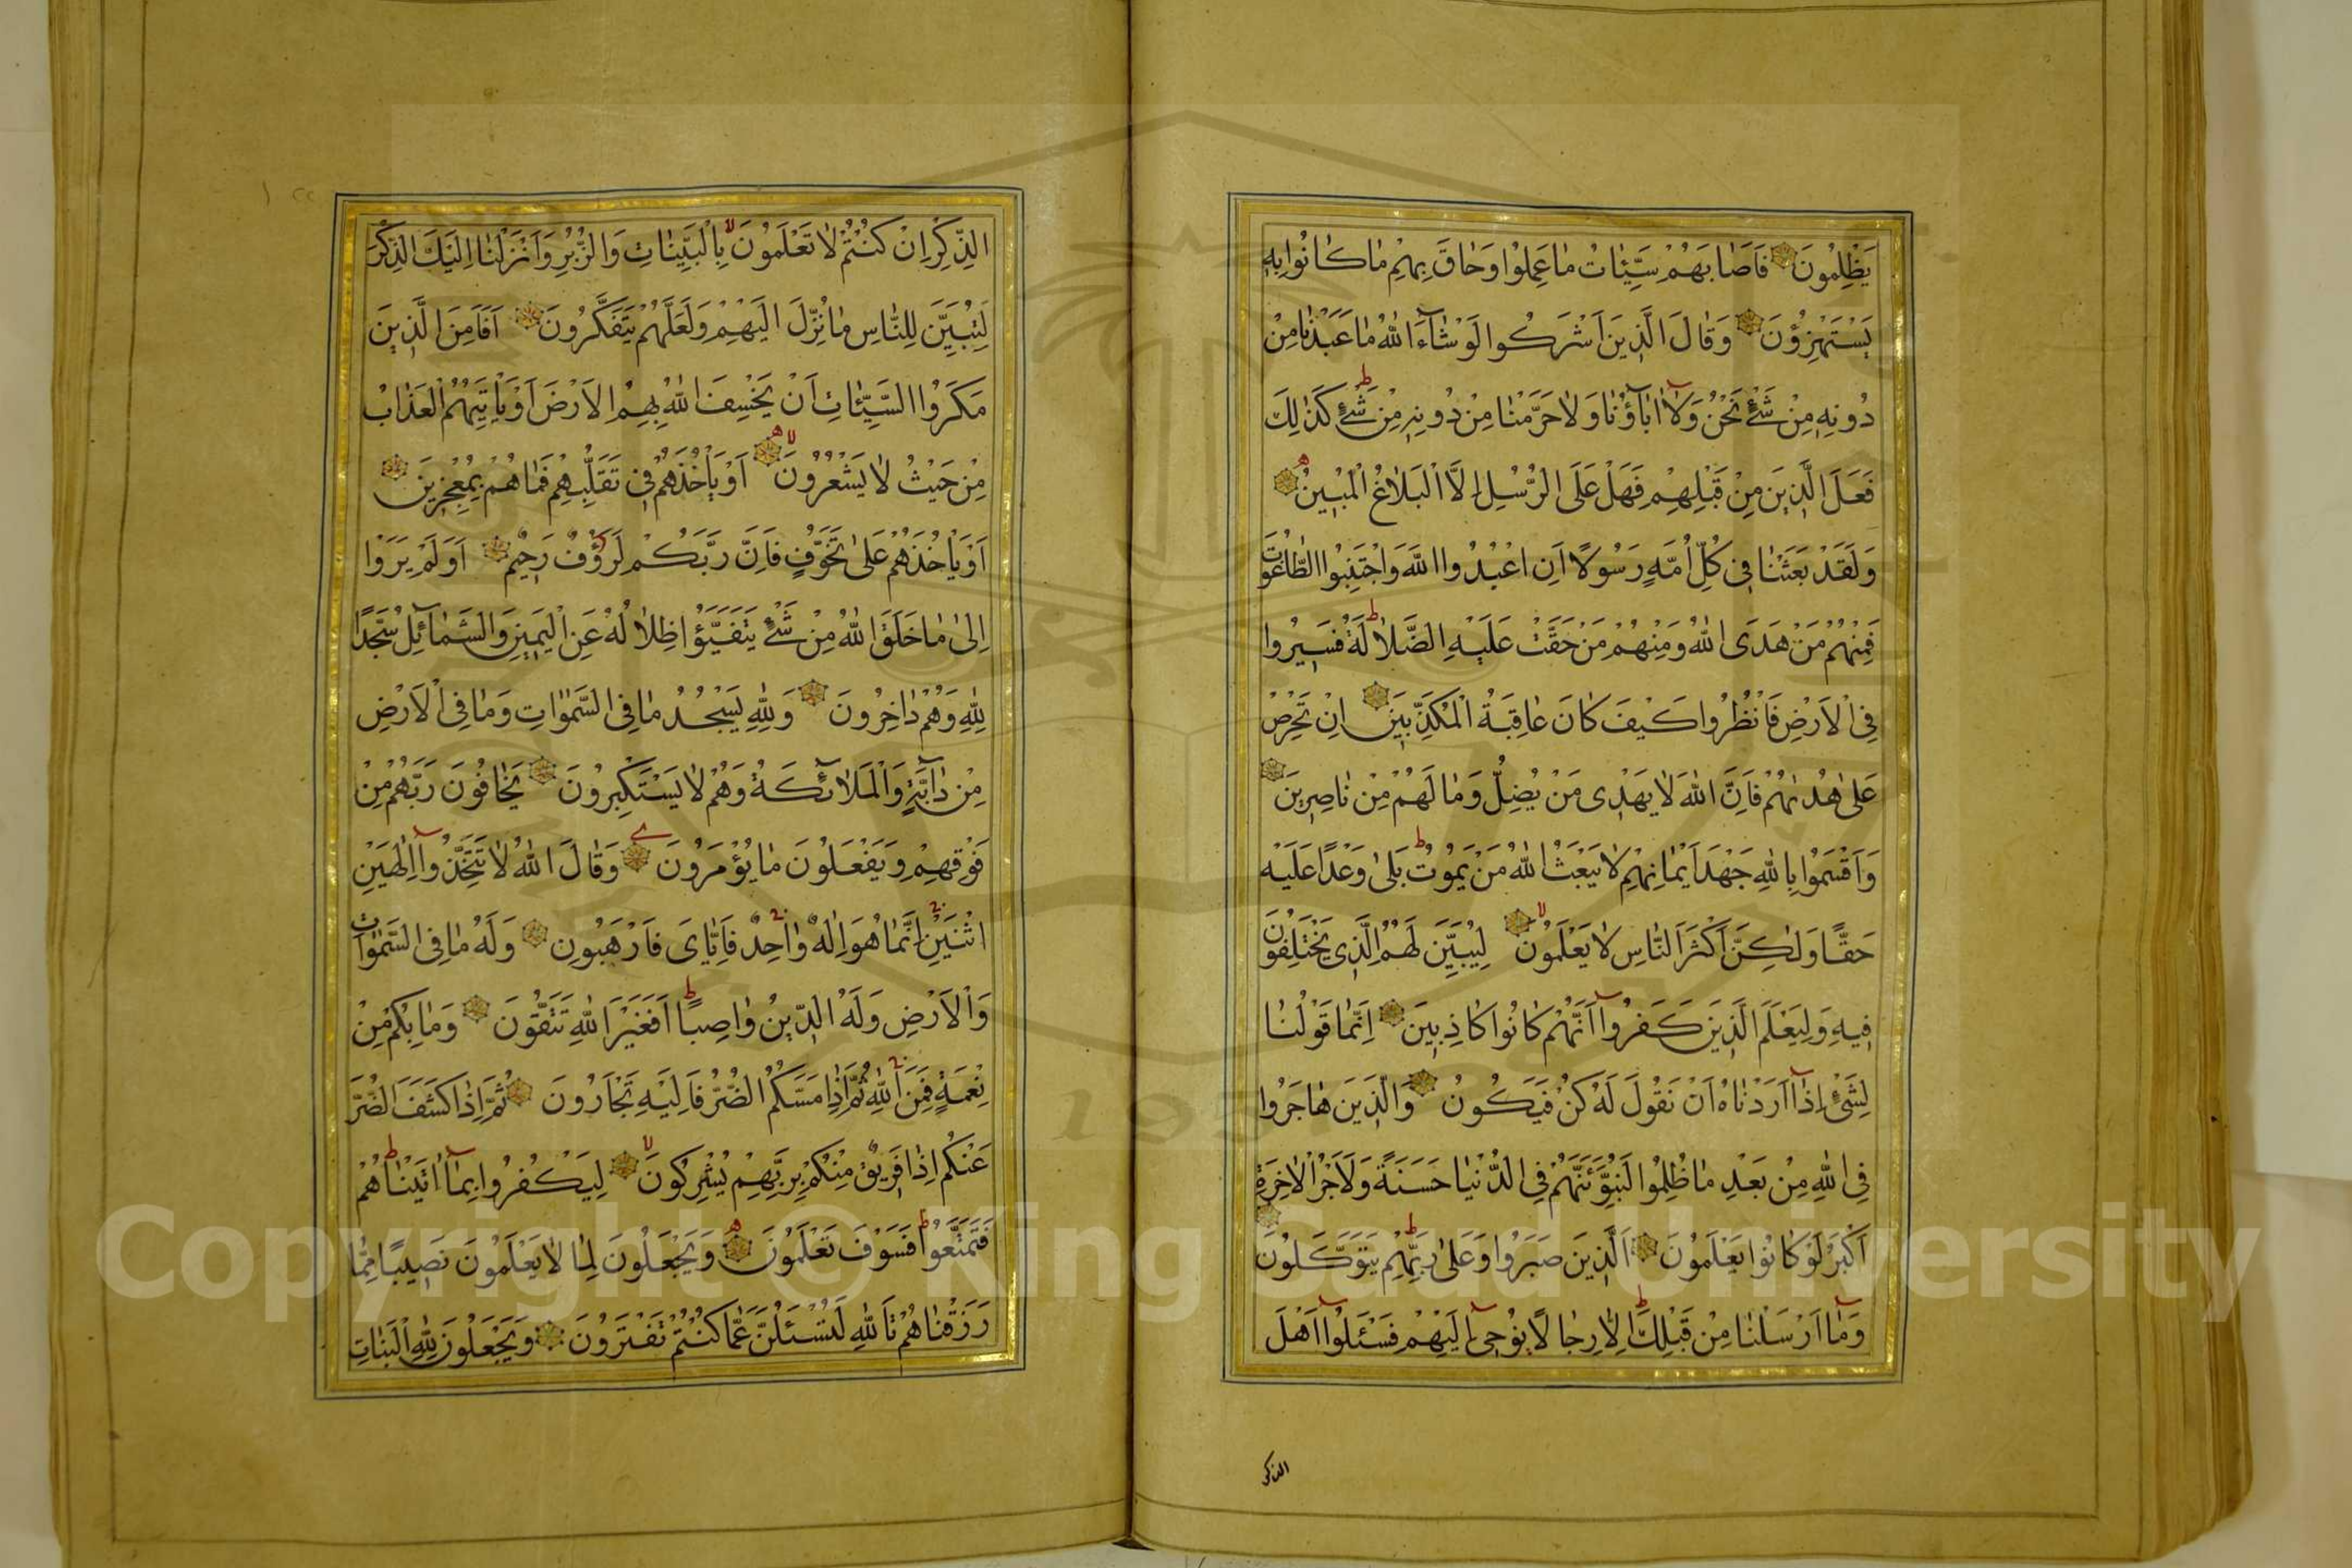 يَظْلِمُونَ فَاَصَابَهُمْ سَيِّئَاتُ مَا عَمِلُوا وَحَاقَ بِهِمْ مَا كَانُوا بِهِ
يَسْتَهْزِؤُنَ وَقَالَ الَّذِينَ اَشْرَكُوا لَوْ شَآءَ اللهُ مَا عَبَدْنَا مِنْ
دُونِهِ مِنْ شَيْءٍ نَحْنُ وَلَآ اٰبَآؤُنَا وَلَا حَرَّمْنَا مِنْ دُونِهِ مِنْ شَيْءٍ كَذٰلِكَ
فَعَلَ الَّذِينَ مِنْ قَبْلِهِمْ فَهَلْ عَلَى الرُّسُلِ اِلَّا الْبَلَاغُ الْمُبِينُ
وَلَقَدْ بَعَثْنَا فِي كُلِّ اُمَّةٍ رَسُولًا اَنِ اعْبُدُوا اللهَ وَاجْتَنِبُوا الطَّاغُوتَ
فَمِنْهُمْ مَنْ هَدَى اللهُ وَمِنْهُمْ مَنْ حَقَّتْ عَلَيْهِ الضَّلَالَةُ فَسِيرُوا
فِي الْاَرْضِ فَانْظُرُوا كَيْفَ كَانَ عَاقِبَةُ الْمُكَذِّبِينَ اِنْ تَحْرِصْ
عَلٰى هُدٰيهُمْ فَاِنَّ اللهَ لَا يَهْدِى مَنْ يُضِلُّ وَمَا لَهُمْ مِنْ نَاصِرِينَ
وَاَقْسَمُوا بِاللهِ جَهْدَ اَيْمَانِهِمْ لَا يَبْعَثُ اللهُ مَنْ يَمُوتُ بَلٰى وَعْدًا عَلَيْهِ
حَقًّا وَلٰكِنَّ اَكْثَرَ النَّاسِ لَا يَعْلَمُونَ لِيُبَيِّنَ لَهُمُ الَّذِى يَخْتَلِفُونَ
فِيهِ وَلِيَعْلَمَ الَّذِينَ كَفَرُوآ اَنَّهُمْ كَانُوا كَاذِبِينَ اِنَّمَا قَوْلُنَا
لِشَيْءٍ اِذَآ اَرَدْنَاهُ اَنْ نَقُولَ لَهُ كُنْ فَيَكُونُ وَالَّذِينَ هَاجَرُوا
فِي اللهِ مِنْ بَعْدِ مَا ظُلِمُوا لَنُبَوِّئَنَّهُمْ فِي الدُّنْيَا حَسَنَةً وَلَاَجْرُ الْاٰخِرَةِ
اَكْبَرُ لَوْ كَانُوا يَعْلَمُونَ اَلَّذِينَ صَبَرُوا وَعَلٰى رَبِّهِمْ يَتَوَكَّلُونَ
وَمَآ اَرْسَلْنَا مِنْ قَبْلِكَ اِلَّا رِجَالًا يُوحٰىٓ اِلَيْهِمْ فَسْئَلُوآ اَهْلَ
الذكر
الذِّكْرِ اِنْ كُنْتُمْ لَا تَعْلَمُونَ بِالْبَيِّنَاتِ وَالزُّبُرِ وَاَنْزَلْنَا اِلَيْكَ الذِّكْرَ
لِتُبَيِّنَ لِلنَّاسِ مَا نُزِّلَ اِلَيْهِمْ وَلَعَلَّهُمْ يَتَفَكَّرُونَ اَفَاَمِنَ الَّذِينَ
مَكَرُوا السَّيِّئَاتِ اَنْ يَخْسِفَ اللهُ بِهِمُ الْاَرْضَ اَوْ يَاْتِيَهُمُ الْعَذَابُ
مِنْ حَيْثُ لَا يَشْعُرُونَ اَوْ يَاْخُذَهُمْ فِي تَقَلُّبِهِمْ فَمَا هُمْ بِمُعْجِزِينَ
اَوْ يَاْخُذَهُمْ عَلٰى تَخَوُّفٍ فَاِنَّ رَبَّكُمْ لَرَؤُفٌ رَحِيمٌ اَوَلَمْ يَرَوْا
اِلٰى مَا خَلَقَ اللهُ مِنْ شَيْءٍ يَتَفَيَّؤُا ظِلَالُهُ عَنِ الْيَمِينِ وَالشَّمَآئِلِ سُجَّدًا
لِلّٰهِ وَهُمْ دَاخِرُونَ وَلِلّٰهِ يَسْجُدُ مَا فِي السَّمٰوَاتِ وَمَا فِي الْاَرْضِ
مِنْ دَآبَّةٍ وَالْمَلَآئِكَةُ وَهُمْ لَا يَسْتَكْبِرُونَ يَخَافُونَ رَبَّهُمْ مِنْ
فَوْقِهِمْ وَيَفْعَلُونَ مَا يُؤْمَرُونَ وَقَالَ اللهُ لَا تَتَّخِذُوآ اِلٰهَيْنِ
اثْنَيْنِ اِنَّمَا هُوَ اِلٰهٌ وَاحِدٌ فَاِيَّايَ فَارْهَبُونِ وَلَهُ مَا فِي السَّمٰوَاتِ
وَالْاَرْضِ وَلَهُ الدِّينُ وَاصِبًا اَفَغَيْرَ اللهِ تَتَّقُونَ وَمَا بِكُمْ مِنْ
نِعْمَةٍ فَمِنَ اللهِ ثُمَّ اِذَا مَسَّكُمُ الضُّرُّ فَاِلَيْهِ تَجْاَرُونَ ثُمَّ اِذَا كَشَفَ الضُّرَّ
عَنْكُمْ اِذَا فَرِيقٌ مِنْكُمْ بِرَبِّهِمْ يُشْرِكُونَ لِيَكْفُرُوا بِمَآ اٰتَيْنَاهُمْ
فَتَمَتَّعُوا فَسَوْفَ تَعْلَمُونَ وَيَجْعَلُونَ لِمَا لَا يَعْلَمُونَ نَصِيبًا مِمَّا
رَزَقْنَاهُمْ تَاللهِ لَتُسْئَلُنَّ عَمَّا كُنْتُمْ تَفْتَرُونَ وَيَجْعَلُونَ لِلّٰهِ الْبَنَاتِ
Copyright © King Saud University